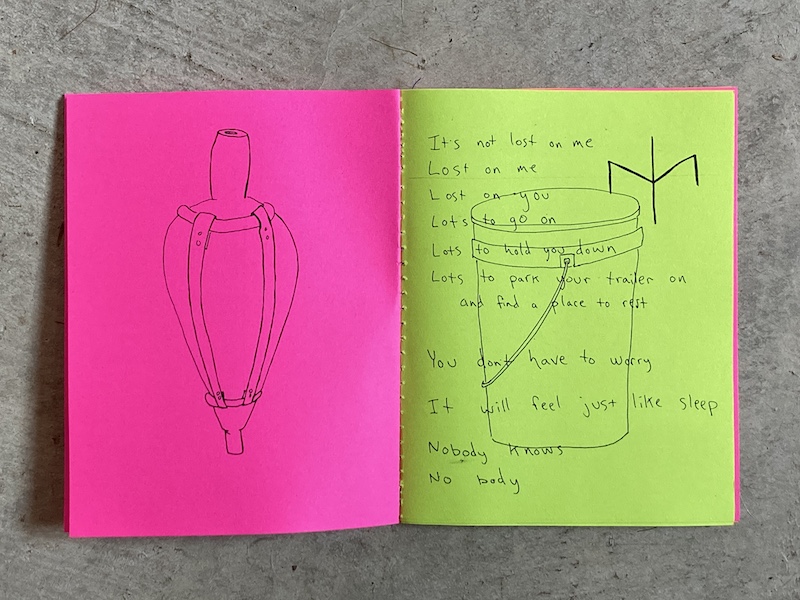 It's not lost on me
Lost on me
Lost on you
Lots to go on
Lots to hold you down
Lots to park your trailer on
and find a place to rest
You dont have to worry
It will feel just like sleep
Nobody knows
No body